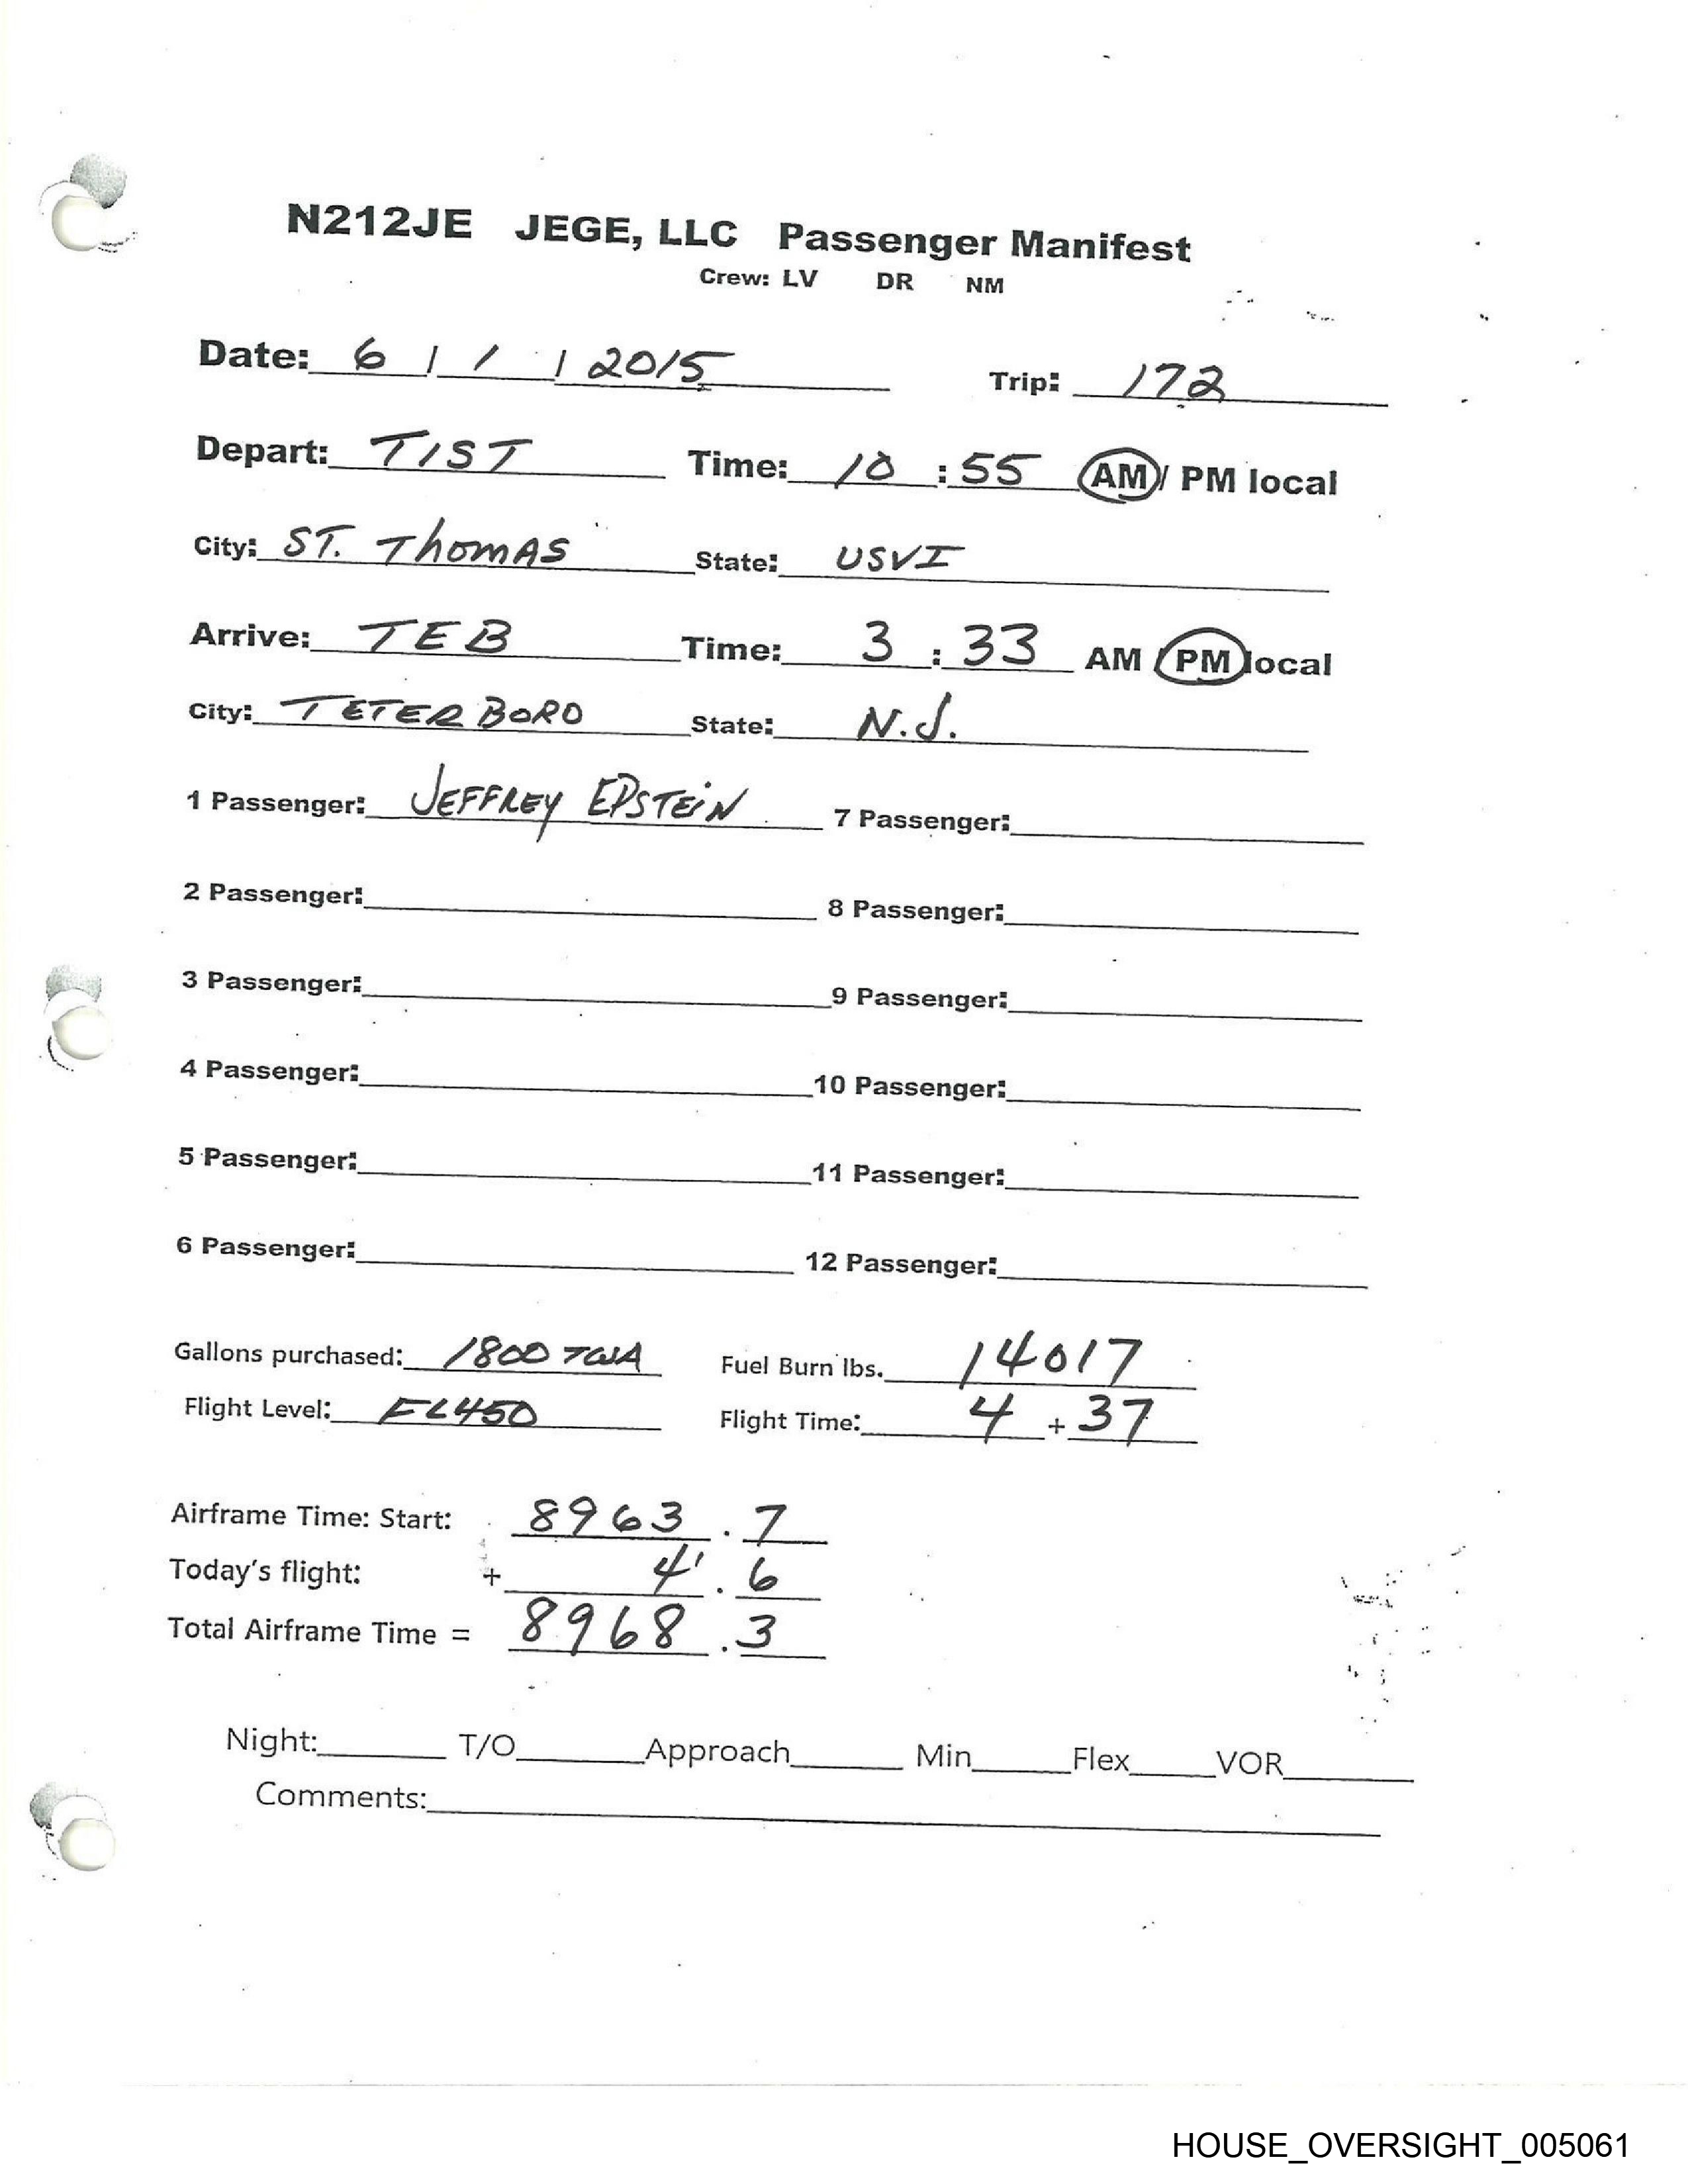 N212JE JEGE, LLC Passenger Manifest
Crew: LV DR NM
Date: 6 / 1 / 2015 Trip: 172
Depart: TIST Time: 10 : 55 AM / PM local
City: ST. ThomAS State: USVI
Arrive: TEB Time: 3 : 33 AM / PM local
City: TETERBORO State: N.J.
1 Passenger: JEFFREY EPSTEiN 7 Passenger:
2 Passenger: 8 Passenger:
3 Passenger: 9 Passenger:
4 Passenger: 10 Passenger:
5 Passenger: 11 Passenger:
6 Passenger: 12 Passenger:
Gallons purchased: 1800 Fuel Burn lbs. 14017
Flight Level: FL450 Flight Time: 4 + 37
Airframe Time: Start: 8963 . 7
Today's flight: + 4 . 6
Total Airframe Time = 8968 . 3
Night: T/O Approach Min Flex VOR
Comments:
HOUSE_OVERSIGHT_005061